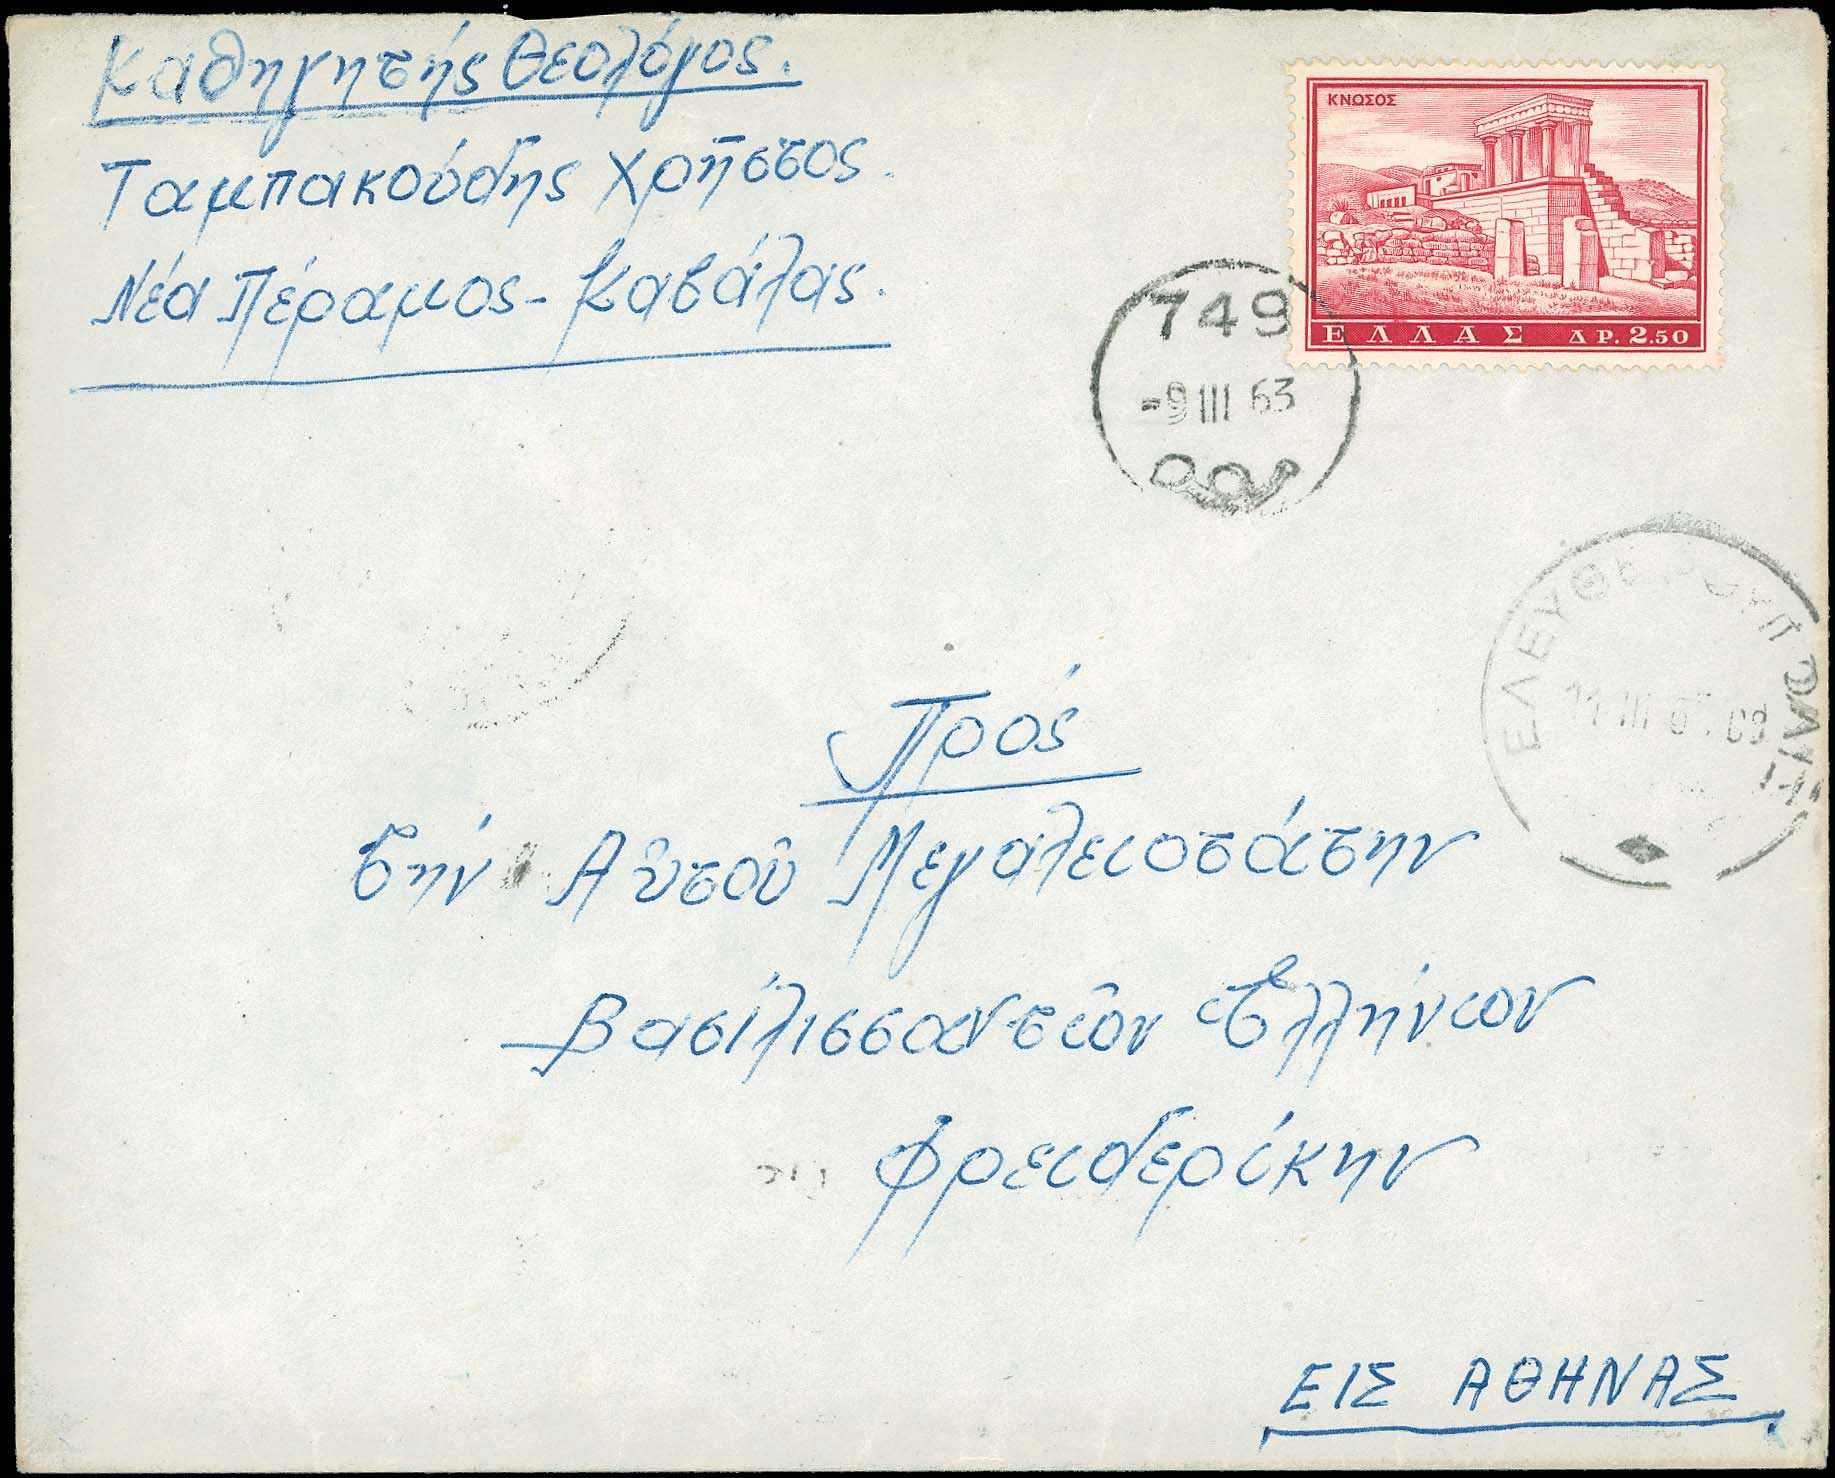 Καθηγητής Θεολόγος.
Ταμπακούδης Χρῆστος.
Νέα Πέραμος - Καβάλας.
ΚΝΩΣΟΣ
ΕΛΛΑΣ ΔΡ. 2.50
749
-9 III 63
11 III
Πρός
τήν Αὐτοῦ Μεγαλειοτάτην
Βασίλισσαν τῶν Ἑλλήνων
Φρειδερίκην
ΕΙΣ ΑΘΗΝΑΣ